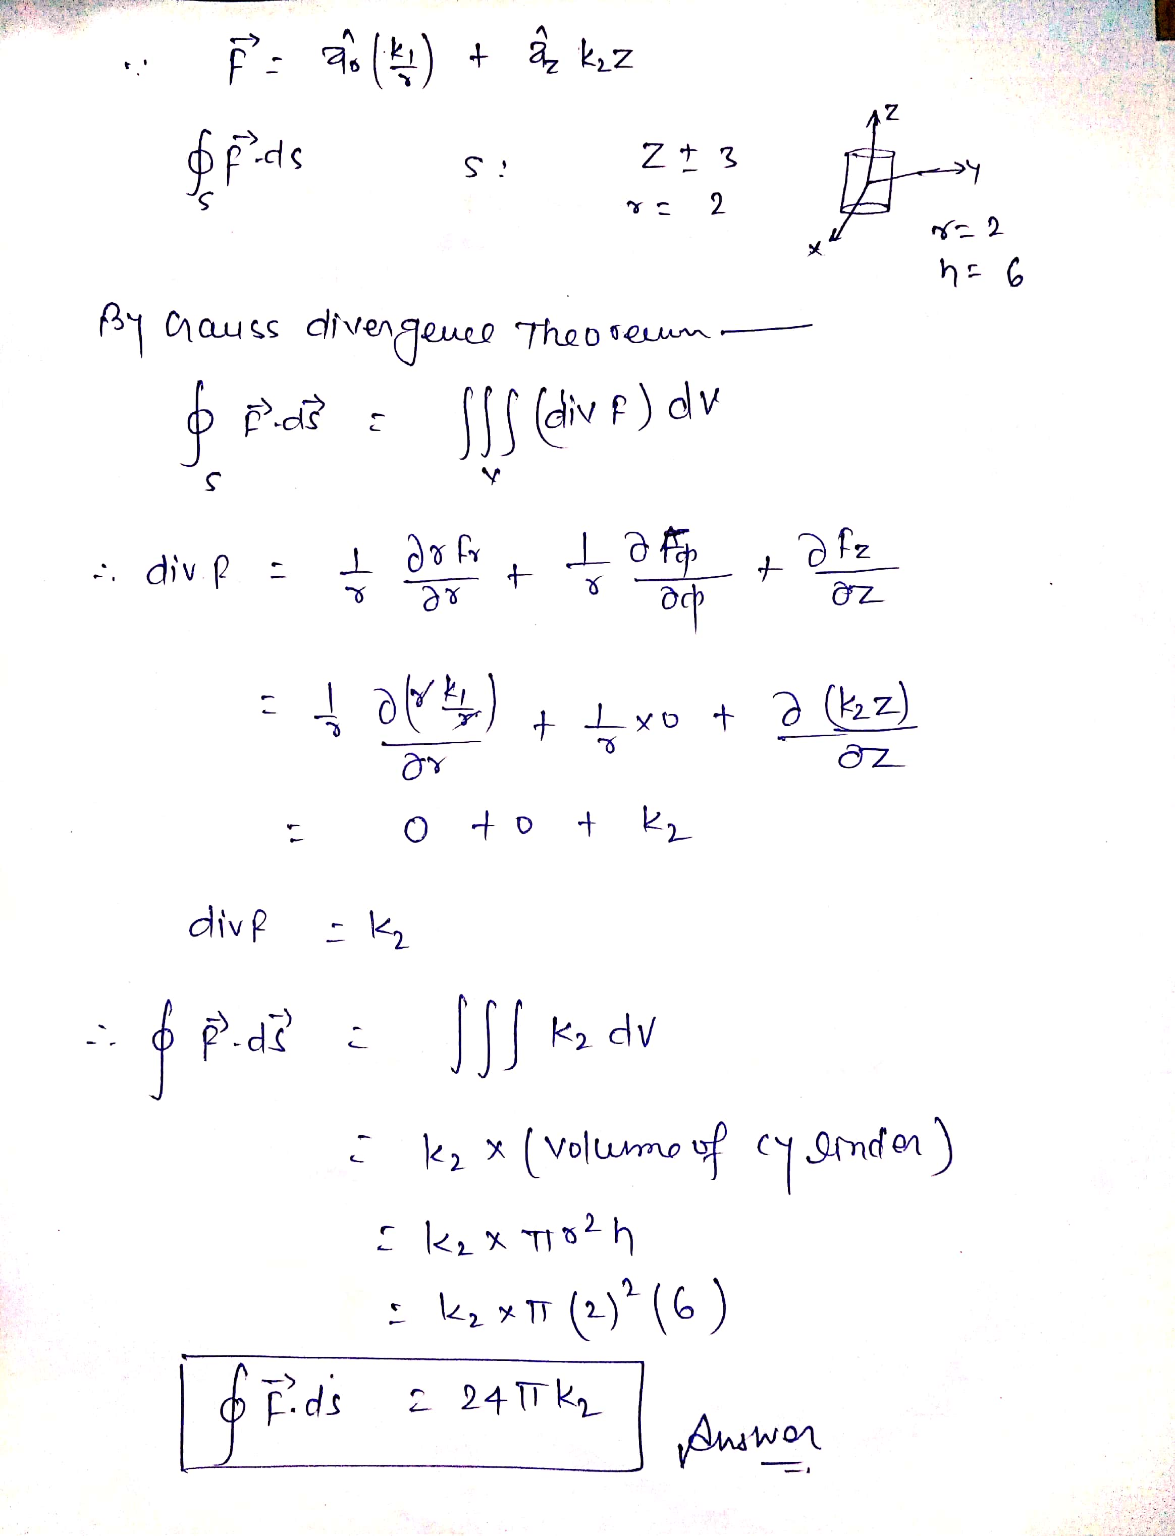 ∵ F⃗ = â₀ (k₁/r) + â_z k₂z
∮_S F⃗.ds S: Z ± 3
r = 2
Z
Y
X
r = 2
h = 6
By Gauss divergence Theorem —
∮_S F⃗.ds⃗ = ∭_V (div F) dv
∴ div F = 1/r ∂rFr/∂r + 1/r ∂Fφ/∂φ + ∂Fz/∂z
= 1/r ∂(r k₁/r)/∂r + 1/r × 0 + ∂(k₂z)/∂z
= 0 + 0 + k₂
div F = k₂
∴ ∮ F⃗.ds⃗ = ∭ k₂ dv
= k₂ × (volume of cylinder)
= k₂ × πr²h
= k₂ × π (2)² (6)
∮ F⃗.ds = 24πk₂
Answer